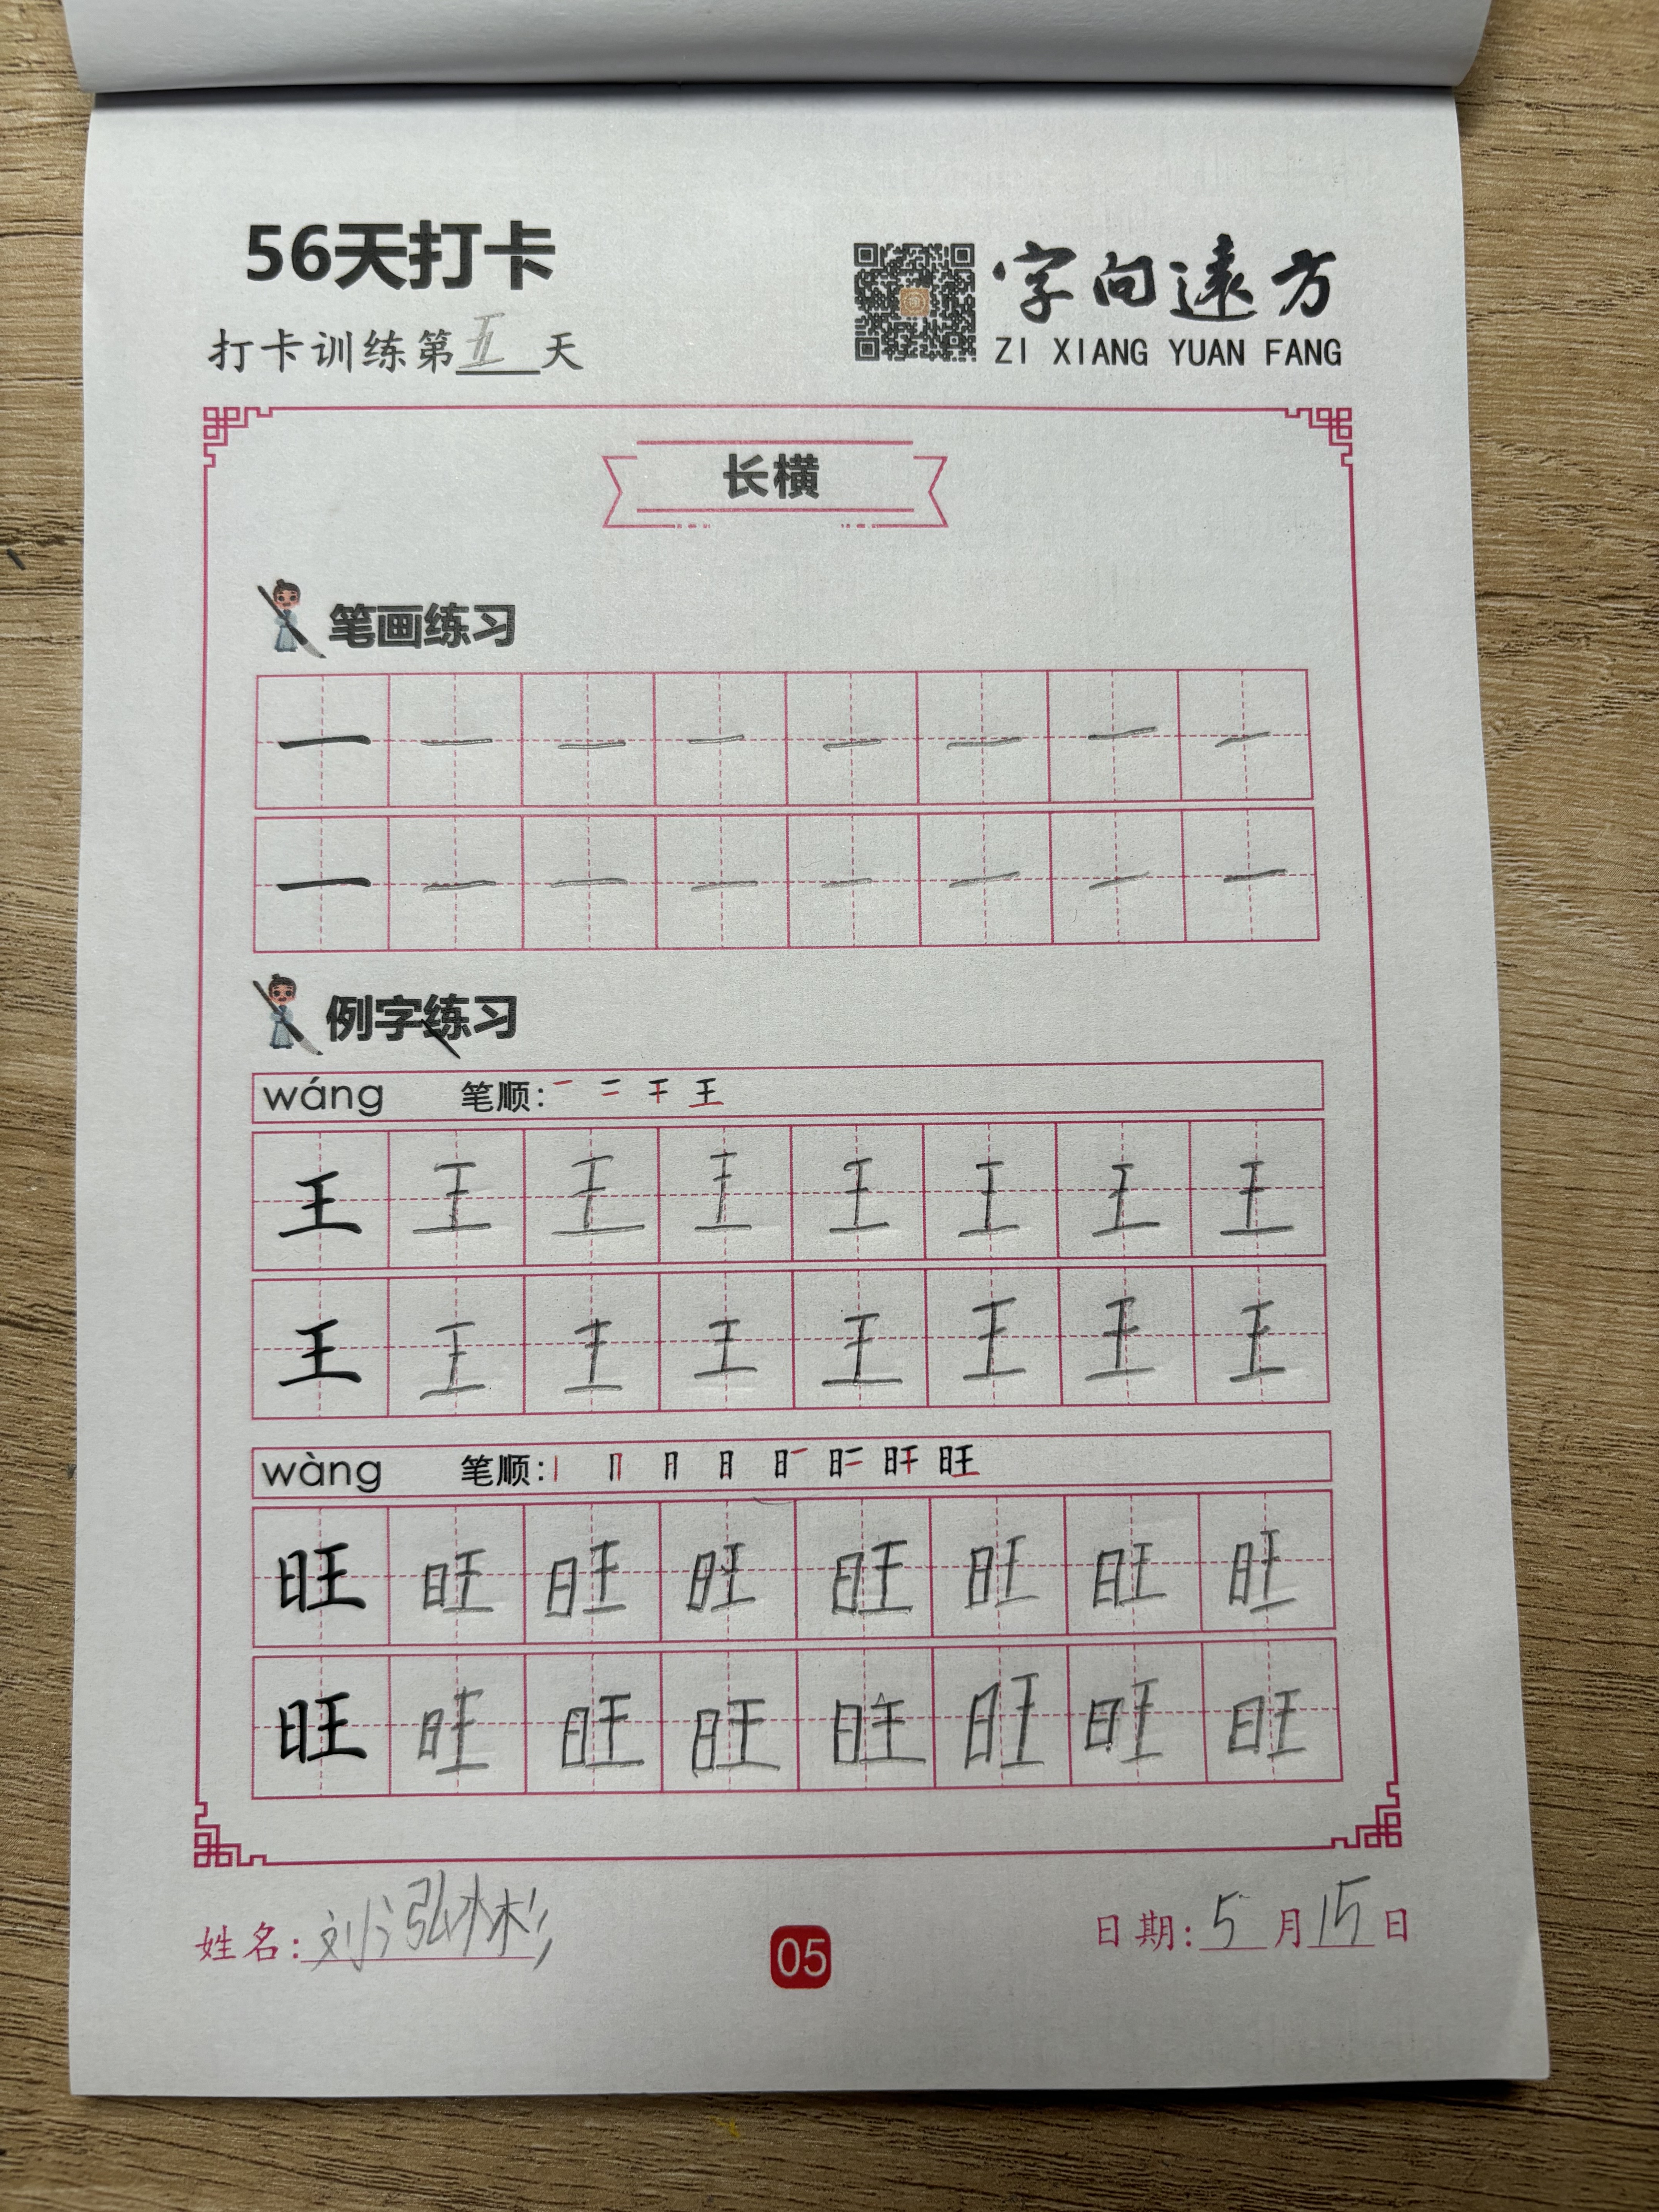 56天打卡
打卡训练第五天
字向遠方
ZI XIANG YUAN FANG
长横
笔画练习
一 一 一 一 一 一 一 一
一 一 一 一 一 一 一 一
例字练习
wáng 笔顺: 一 二 干 王
王 王 王 王 王 王 王 王
王 王 王 王 王 王 王 王
wàng 笔顺: 丨 冂 月 日 旺
旺 旺 旺 旺 旺 旺 旺 旺
旺 旺 旺 旺 旺 旺 旺 旺
姓名: 刘泓彬
05
日期: 5月15日